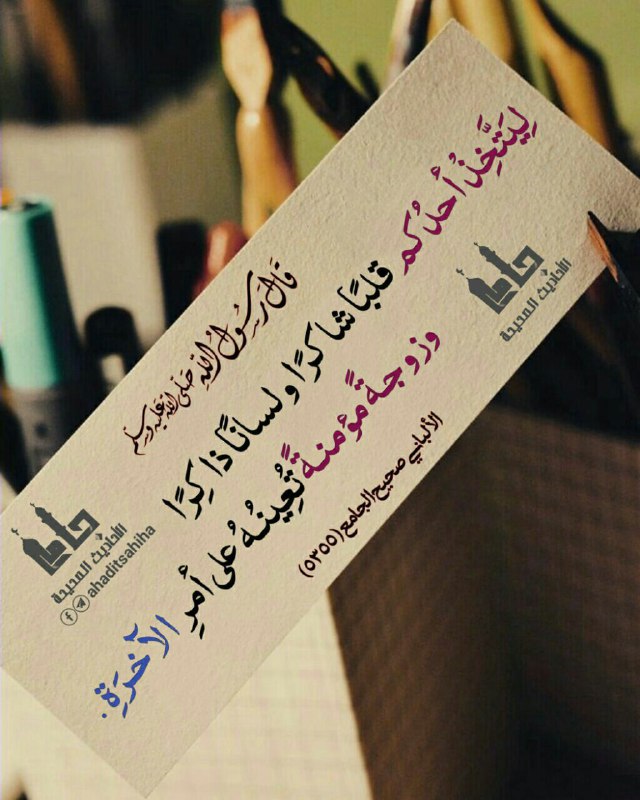 قَالَ رَسُولُ اللهِ صَلَّى اللهُ عَلَيْهِ وَسَلَّم
لِيَتَّخِذْ أحدُكم قلبًا شاكرًا ولسانًا ذاكِرًا
وزوجةً مؤمنةً تُعِينُهُ على أمرِ الآخرَةِ.
الألباني صحيح الجامع (٥٣٥٥)
الأحاديث الصحيحة
الأحاديث الصحيحة
@ahaditsahiha